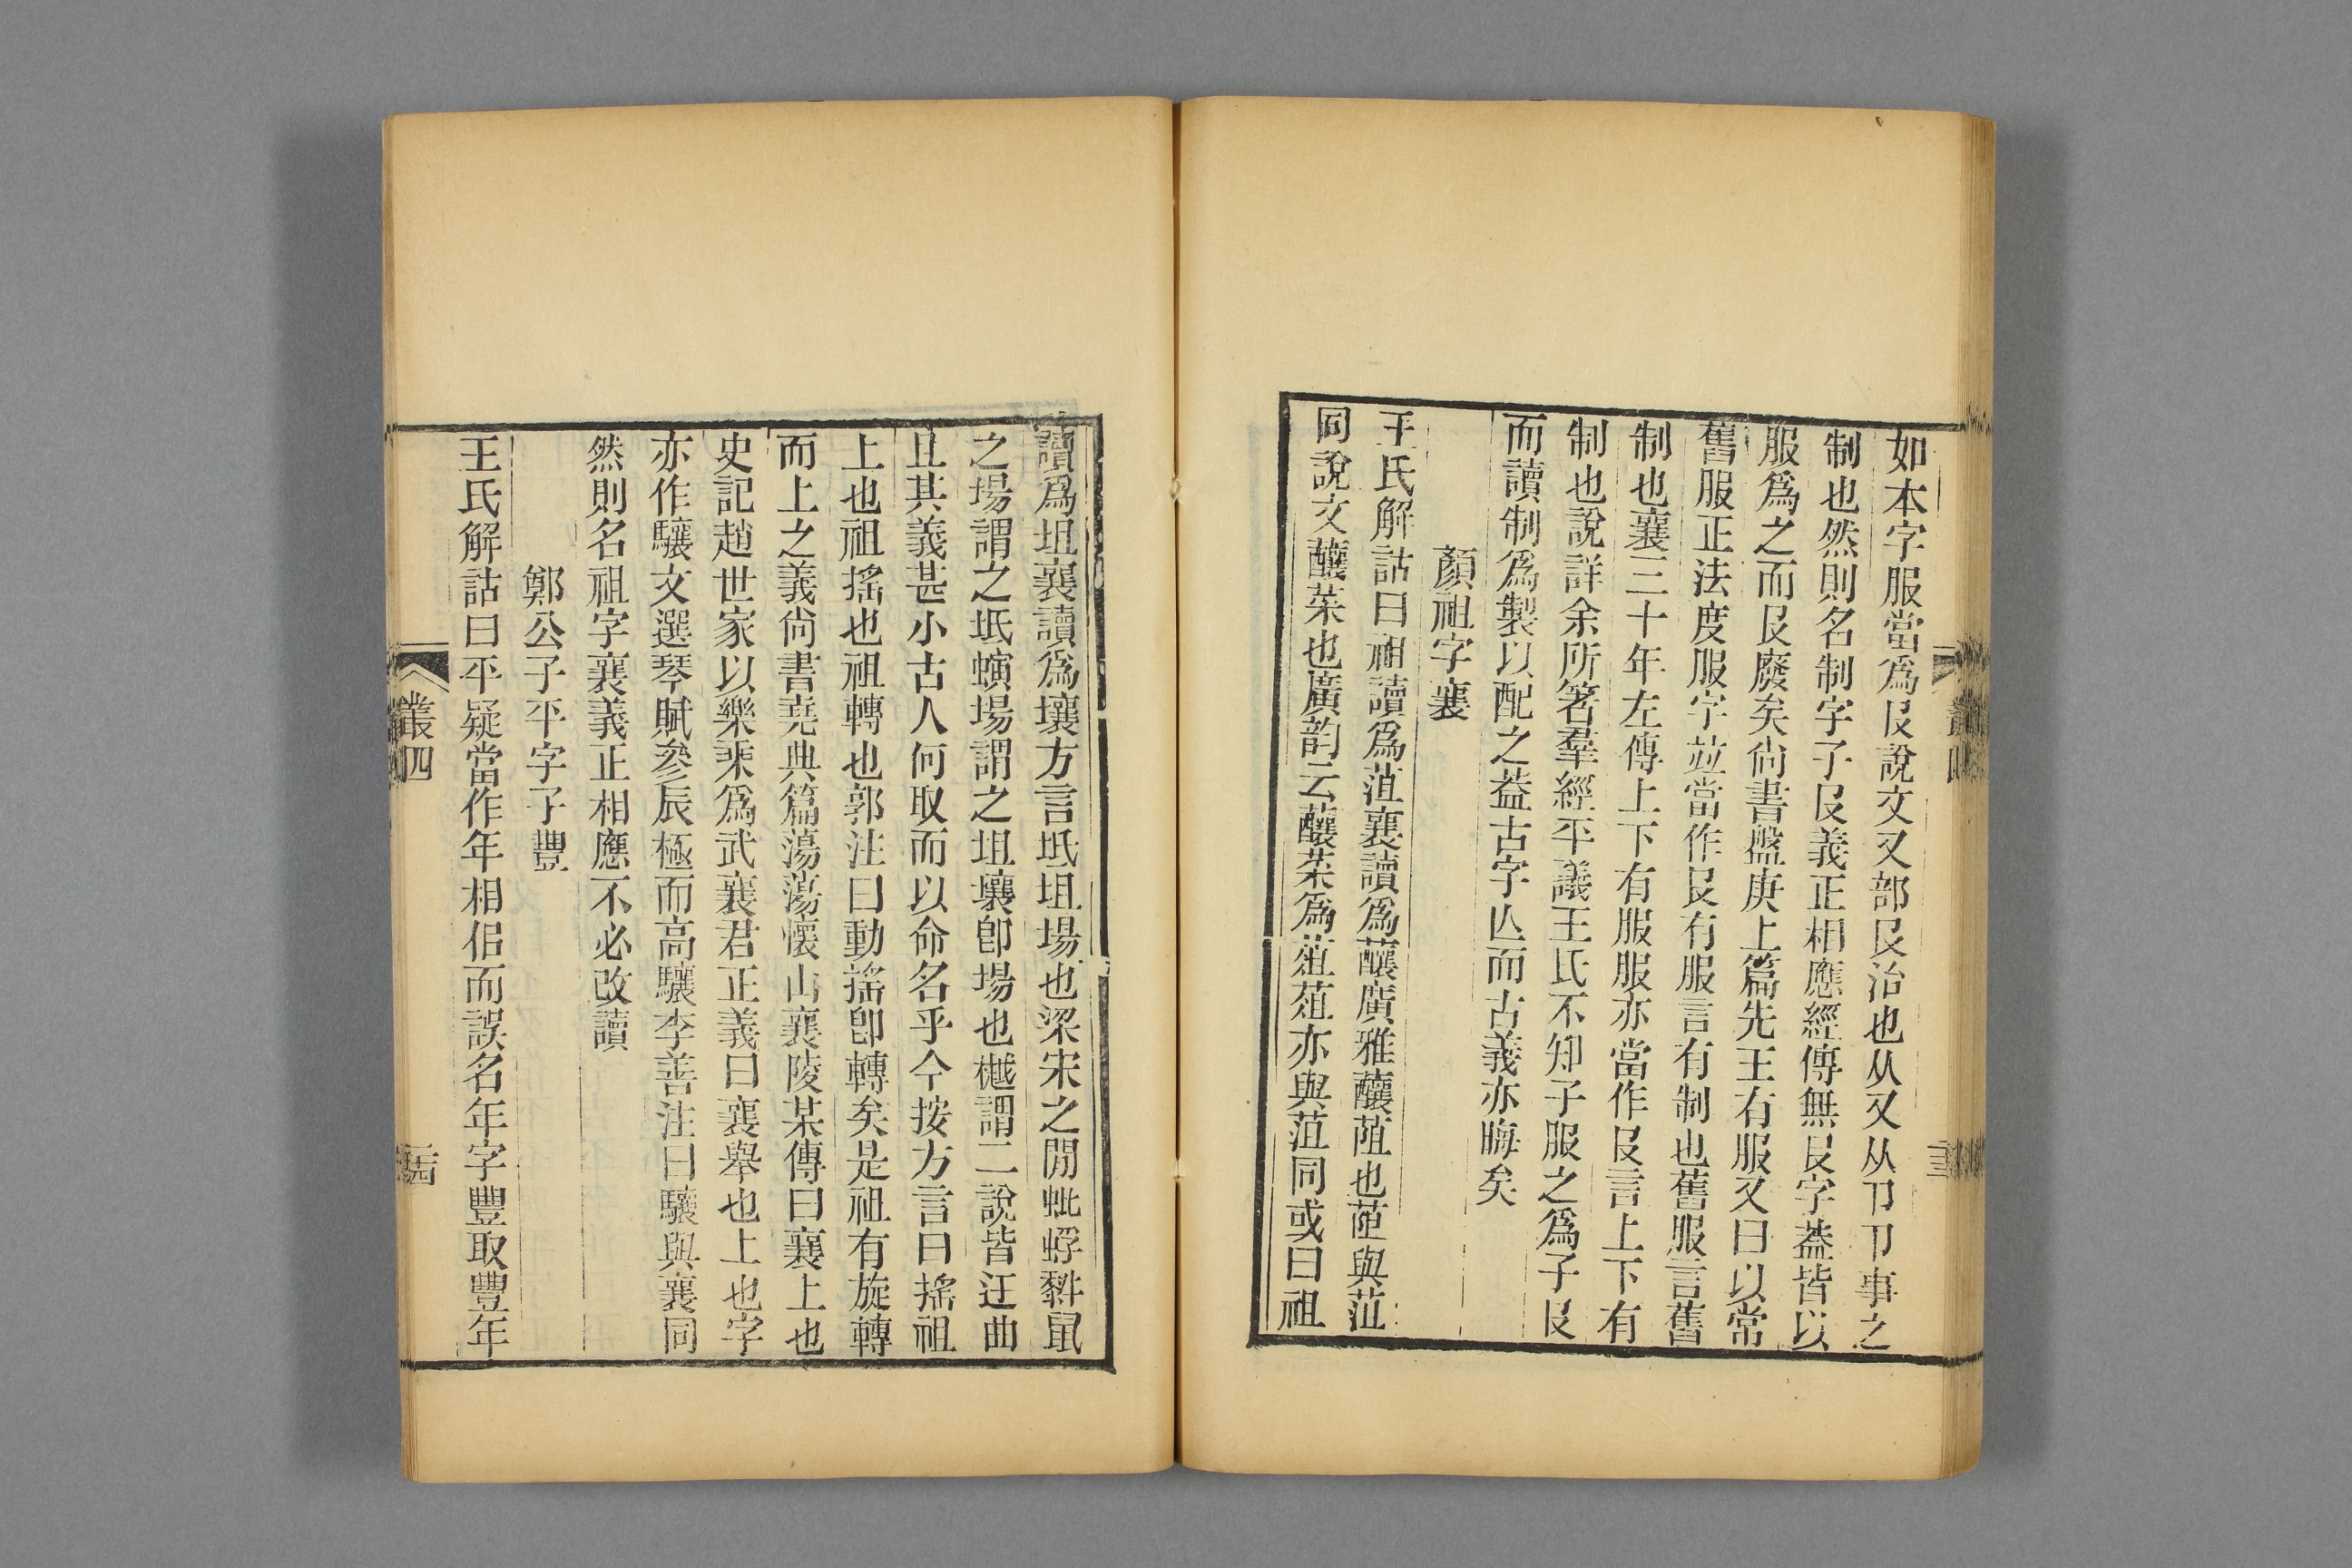 如本字服當爲𠬝說文又部𠬝治也从又从卪卪事之
制也然則名制字子𠬝義正相應經傳無𠬝字葢皆以
服爲之而𠬝廢矣尙書盤庚上篇先王有服又曰以常
舊服正法度服字竝當作𠬝有服言有制也舊服言舊
制也襄三十年左傳上下有服服亦當作𠬝言上下有
制也說詳余所箸羣經平議王氏不知子服之爲子𠬝
而讀制爲製以配之葢古字亾而古義亦晦矣
顏祖字襄
王氏解詁曰祖讀爲菹襄讀爲蘸廣雅釀菹也蒩與菹
同說文釀菜也廣韵云釀菜爲葅葅亦與菹同或曰祖
讀爲坥襄讀爲壤方言坻坥場也梁宋之閒蚍蜉犂鼠
之場謂之坻螾場謂之坥壤卽場也樾謂二說皆迂曲
且其義甚小古人何取而以命名乎今按方言曰搖祖
上也祖搖也祖轉也郭注曰動搖卽轉矣是祖有旋轉
而上之義尙書堯典篇蕩蕩懷山襄陵某傳曰襄上也
史記趙世家以樂乘爲武襄君正義曰襄舉也上也字
亦作驤文選琴賦參辰極而高驤李善注曰驤與襄同
然則名祖字襄義正相應不必改讀
鄭公子平字子豐
王氏解詁曰平疑當作年相佀而誤名年字豐取豐年
叢四